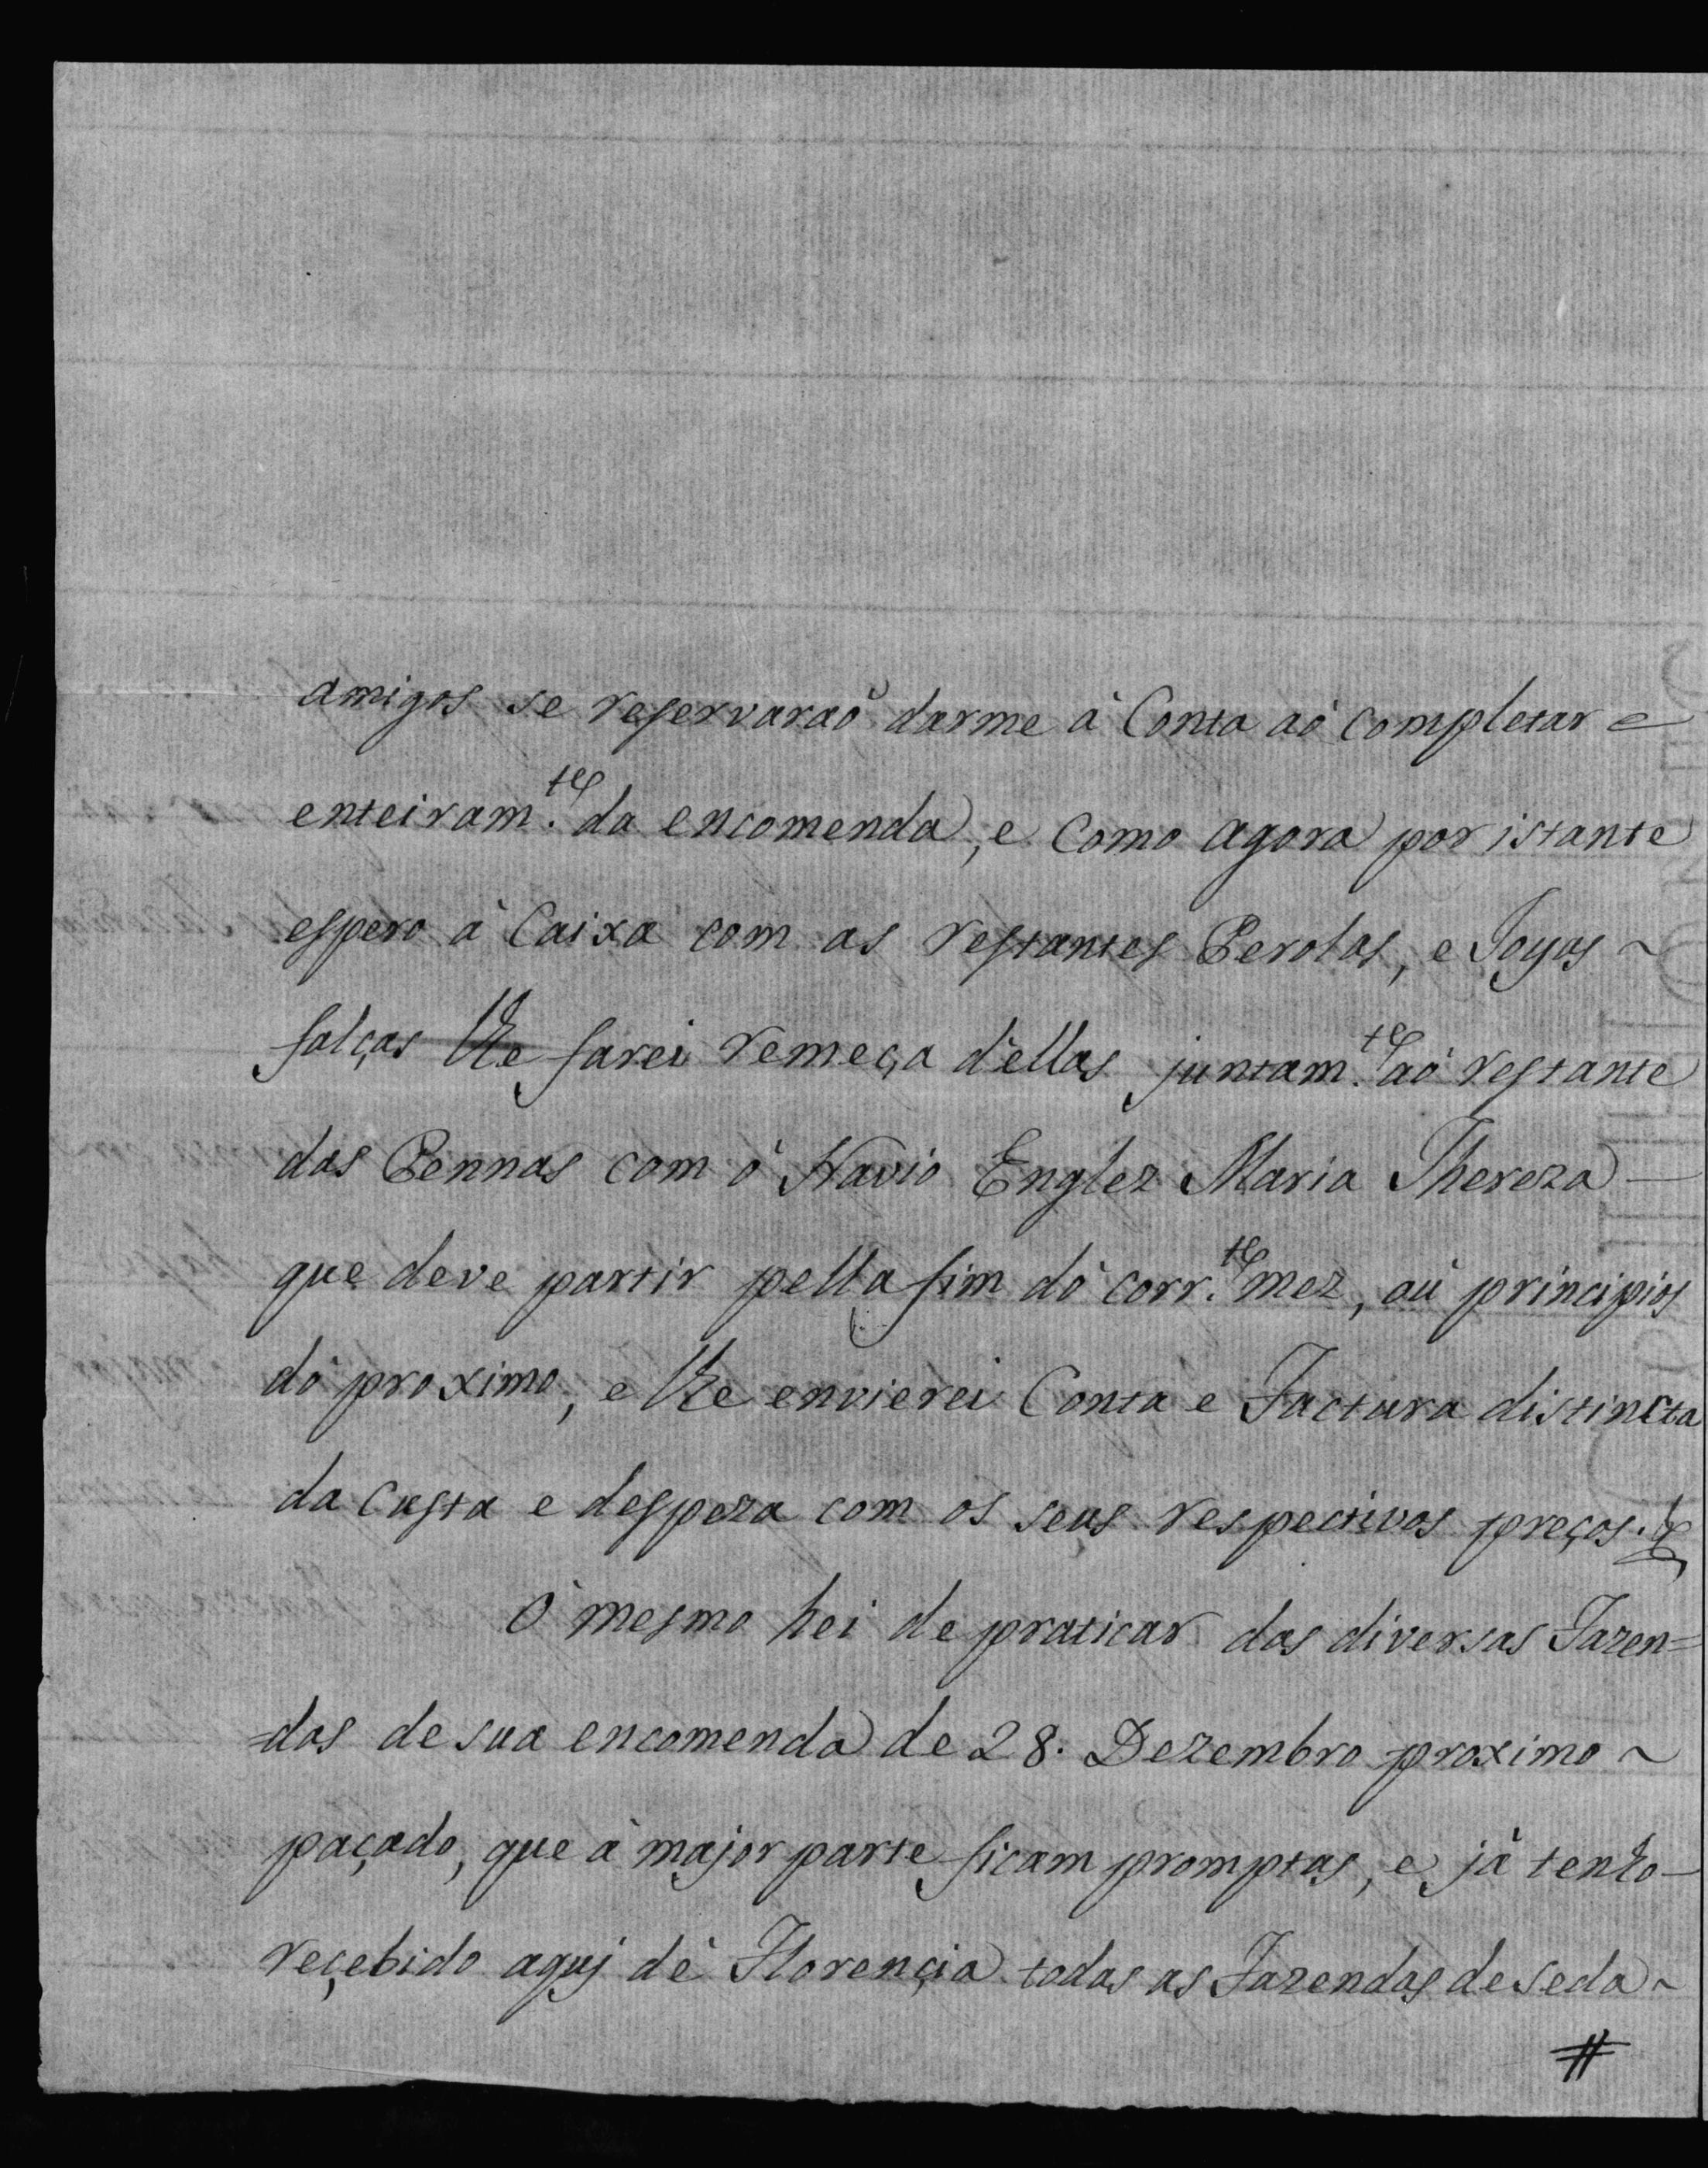 amigos se reservaraõ darme à Conta aò completar e
enteiram.te da encomenda, e Como agora por istante
espero à Caixa com as restantes Perolas, e Joyas ~
falças lhe farei remeça d'ellas juntam.te aò restante
das Pennas com ò Navio Englez Maria Thereza —
que deve partir pella fim dò corr.te mez, où principios
dò proximo, e lhe envierei Conta e Factura distincta
da Custa e despeza com os seus respectivos preços.
Ò mesmo hei de praticar das diversas Fazen=
=das de sua encomenda de 28. Dezembro proximo ~
paçado, que à major parte ficam promptas, e jà tenho —
reçebido aquj dè Florençia todas as Fazendas de seda ~
#